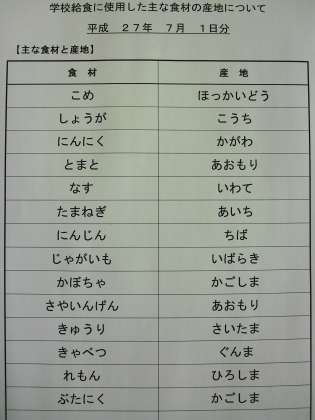 学校給食に使用した主な食材の産地について
平成 27年 7月 1日分
【主な食材と産地】
食 材 産 地
こめ ほっかいどう
しょうが こうち
にんにく かがわ
とまと あおもり
なす いわて
たまねぎ あいち
にんじん ちば
じゃがいも いばらき
かぼちゃ かごしま
さやいんげん あおもり
きゅうり さいたま
きゃべつ ぐんま
れもん ひろしま
ぶたにく かごしま